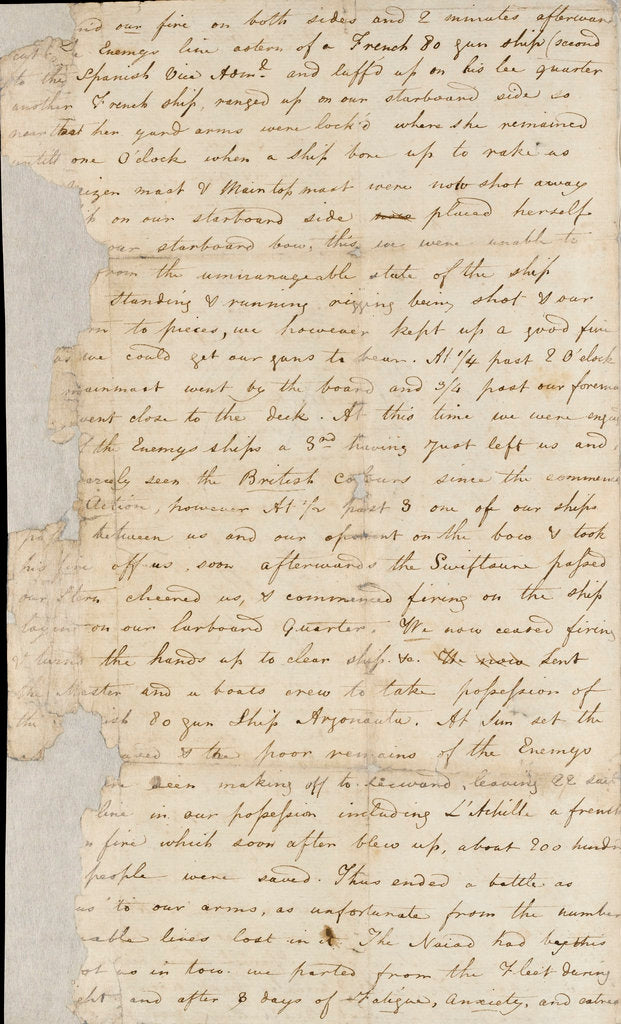 our fire on both sides and 2 minutes afterwar
the Enemys line astern of a French 80 gun ship (second
to the Spanish Vice Adm^l. and luff'd up on his lee quarter
another French ship, ranged up on our starboard side so
near that her yard arms were lock'd where she remained
untill one O'clock when a ship bore up to rake us
izen mast & Main top mast were now shot away
on our starboard side placed herself
our starboard bow, this we were unable to
from the unmanageable state of the ship
standing & running rigging being shot & our
rn to pieces, we however kept up a good fire
as we could get our guns to bear. At 1/4 past 2 O'clock
mainmast went by the board and 3/4 past our forema
went close to the deck. At this time we were enga
the Enemys ships a 3rd having Just left us and
seen the British colours since the commenc
Action, however At 1/2 past 3 one of our ships
between us and our oponent on the bow & took
his fire off us, soon afterwards the Swiftsure passed
our Stern cheered us, & commenced firing on the ship
laying on our larboard Quarter. We now ceased firing
& turnd the hands up to clear ship &c. We now sent
the Master and a boats crew to take possession of
the ish 80 gun Ship Argonauta. At Sun set the
ased & the poor remains of the Enemys
ere seen making off to leeward, leaving 22 sail
line in our possession including L'Achille a french
n fire which soon after blew up, about 200 hundr
people were saved. Thus ended a battle as
us to our arms, as unfortunate from the number
uable lives lost in it. The Naiad had by this
ot us in tow. we parted from the Fleet during
ght and after 8 days of Fatigue, Anxiety, and extre